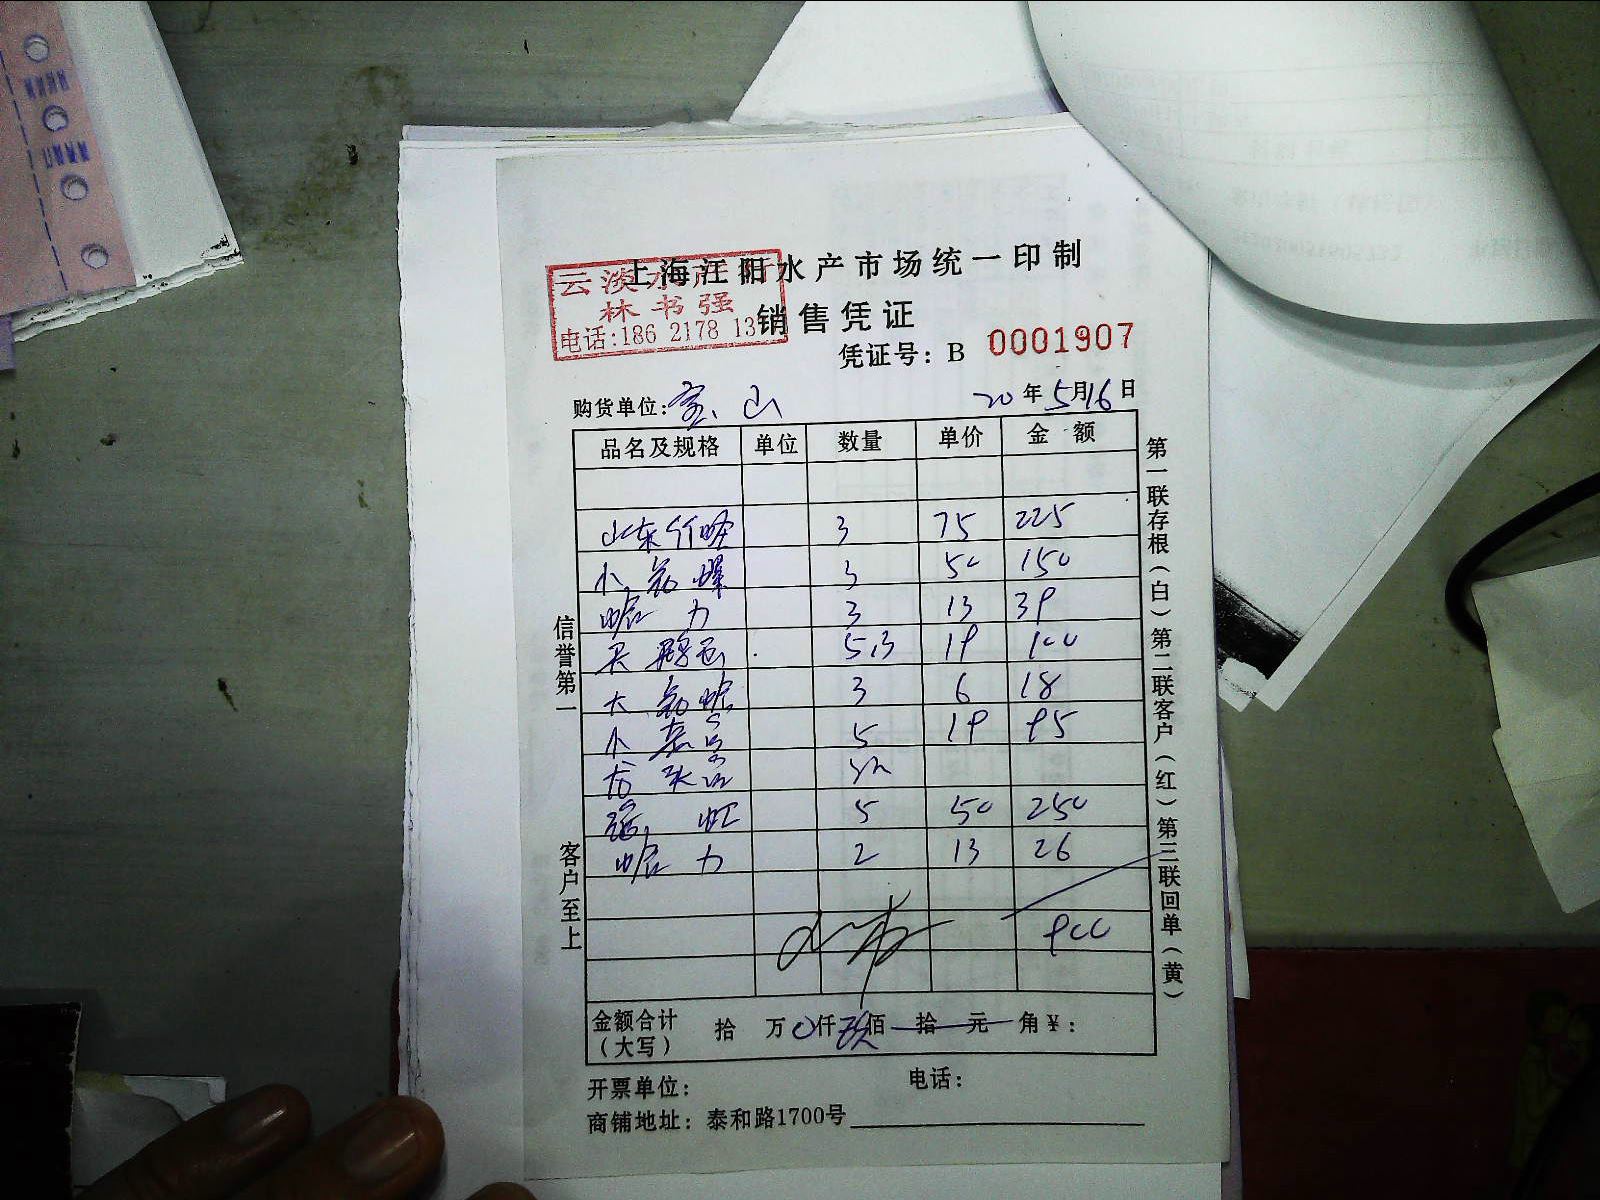 上海江阳水产市场统一印制
云淡水产行
林书强
电话:186 2178 13
销售凭证
凭证号：B 0001907
购货单位:宝山 20年5月16日
品名及规格 单位 数量 单价 金额
山东竹蛏 3 75 225
小 螺 3 50 150
蛤力 3 13 39
5.3 19 100
大 3 6 18
小 5 19 95
龙头
虹 5 50 250
蛤力 2 13 26
900
金额合计 拾 万 0仟 玖佰 拾 元 角¥：
（大写）
开票单位： 电话：
商铺地址：泰和路1700号
信誉第一 客户至上
第一联存根（白）第二联客户（红）第三联回单（黄）